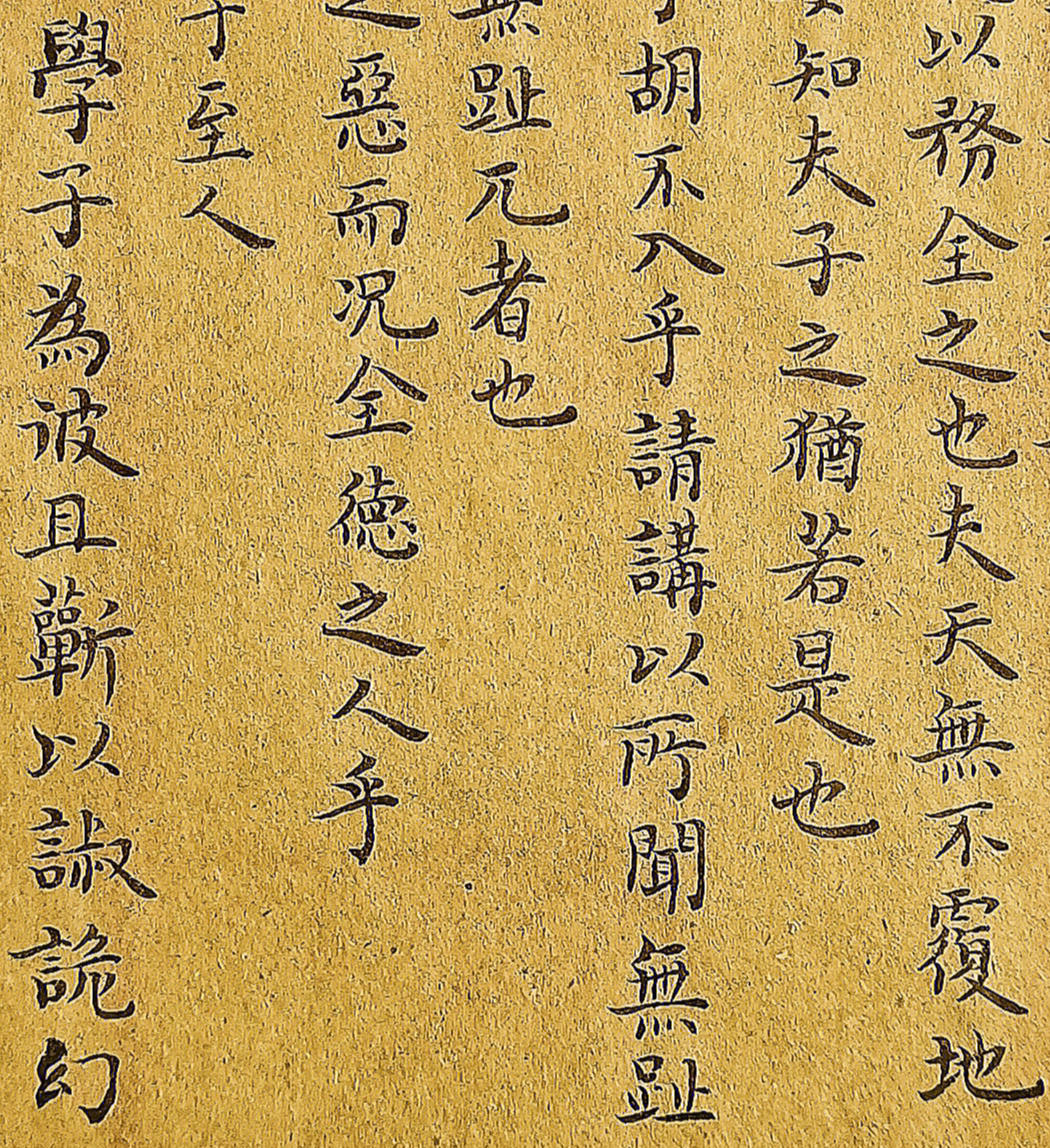 以務全之也夫天無不覆地
知夫子之猶若是也
胡不入乎請講以所聞無趾
無趾兀者也
之惡而况全徳之人乎
至人
學子為彼且蘄以諔詭幻